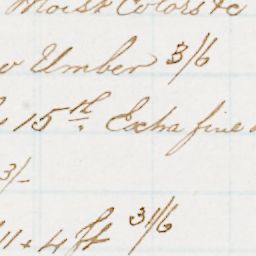 Moist Colors &c
Umber 3/6
15th Extra fine
3/-
11 + 4 ft 3/6